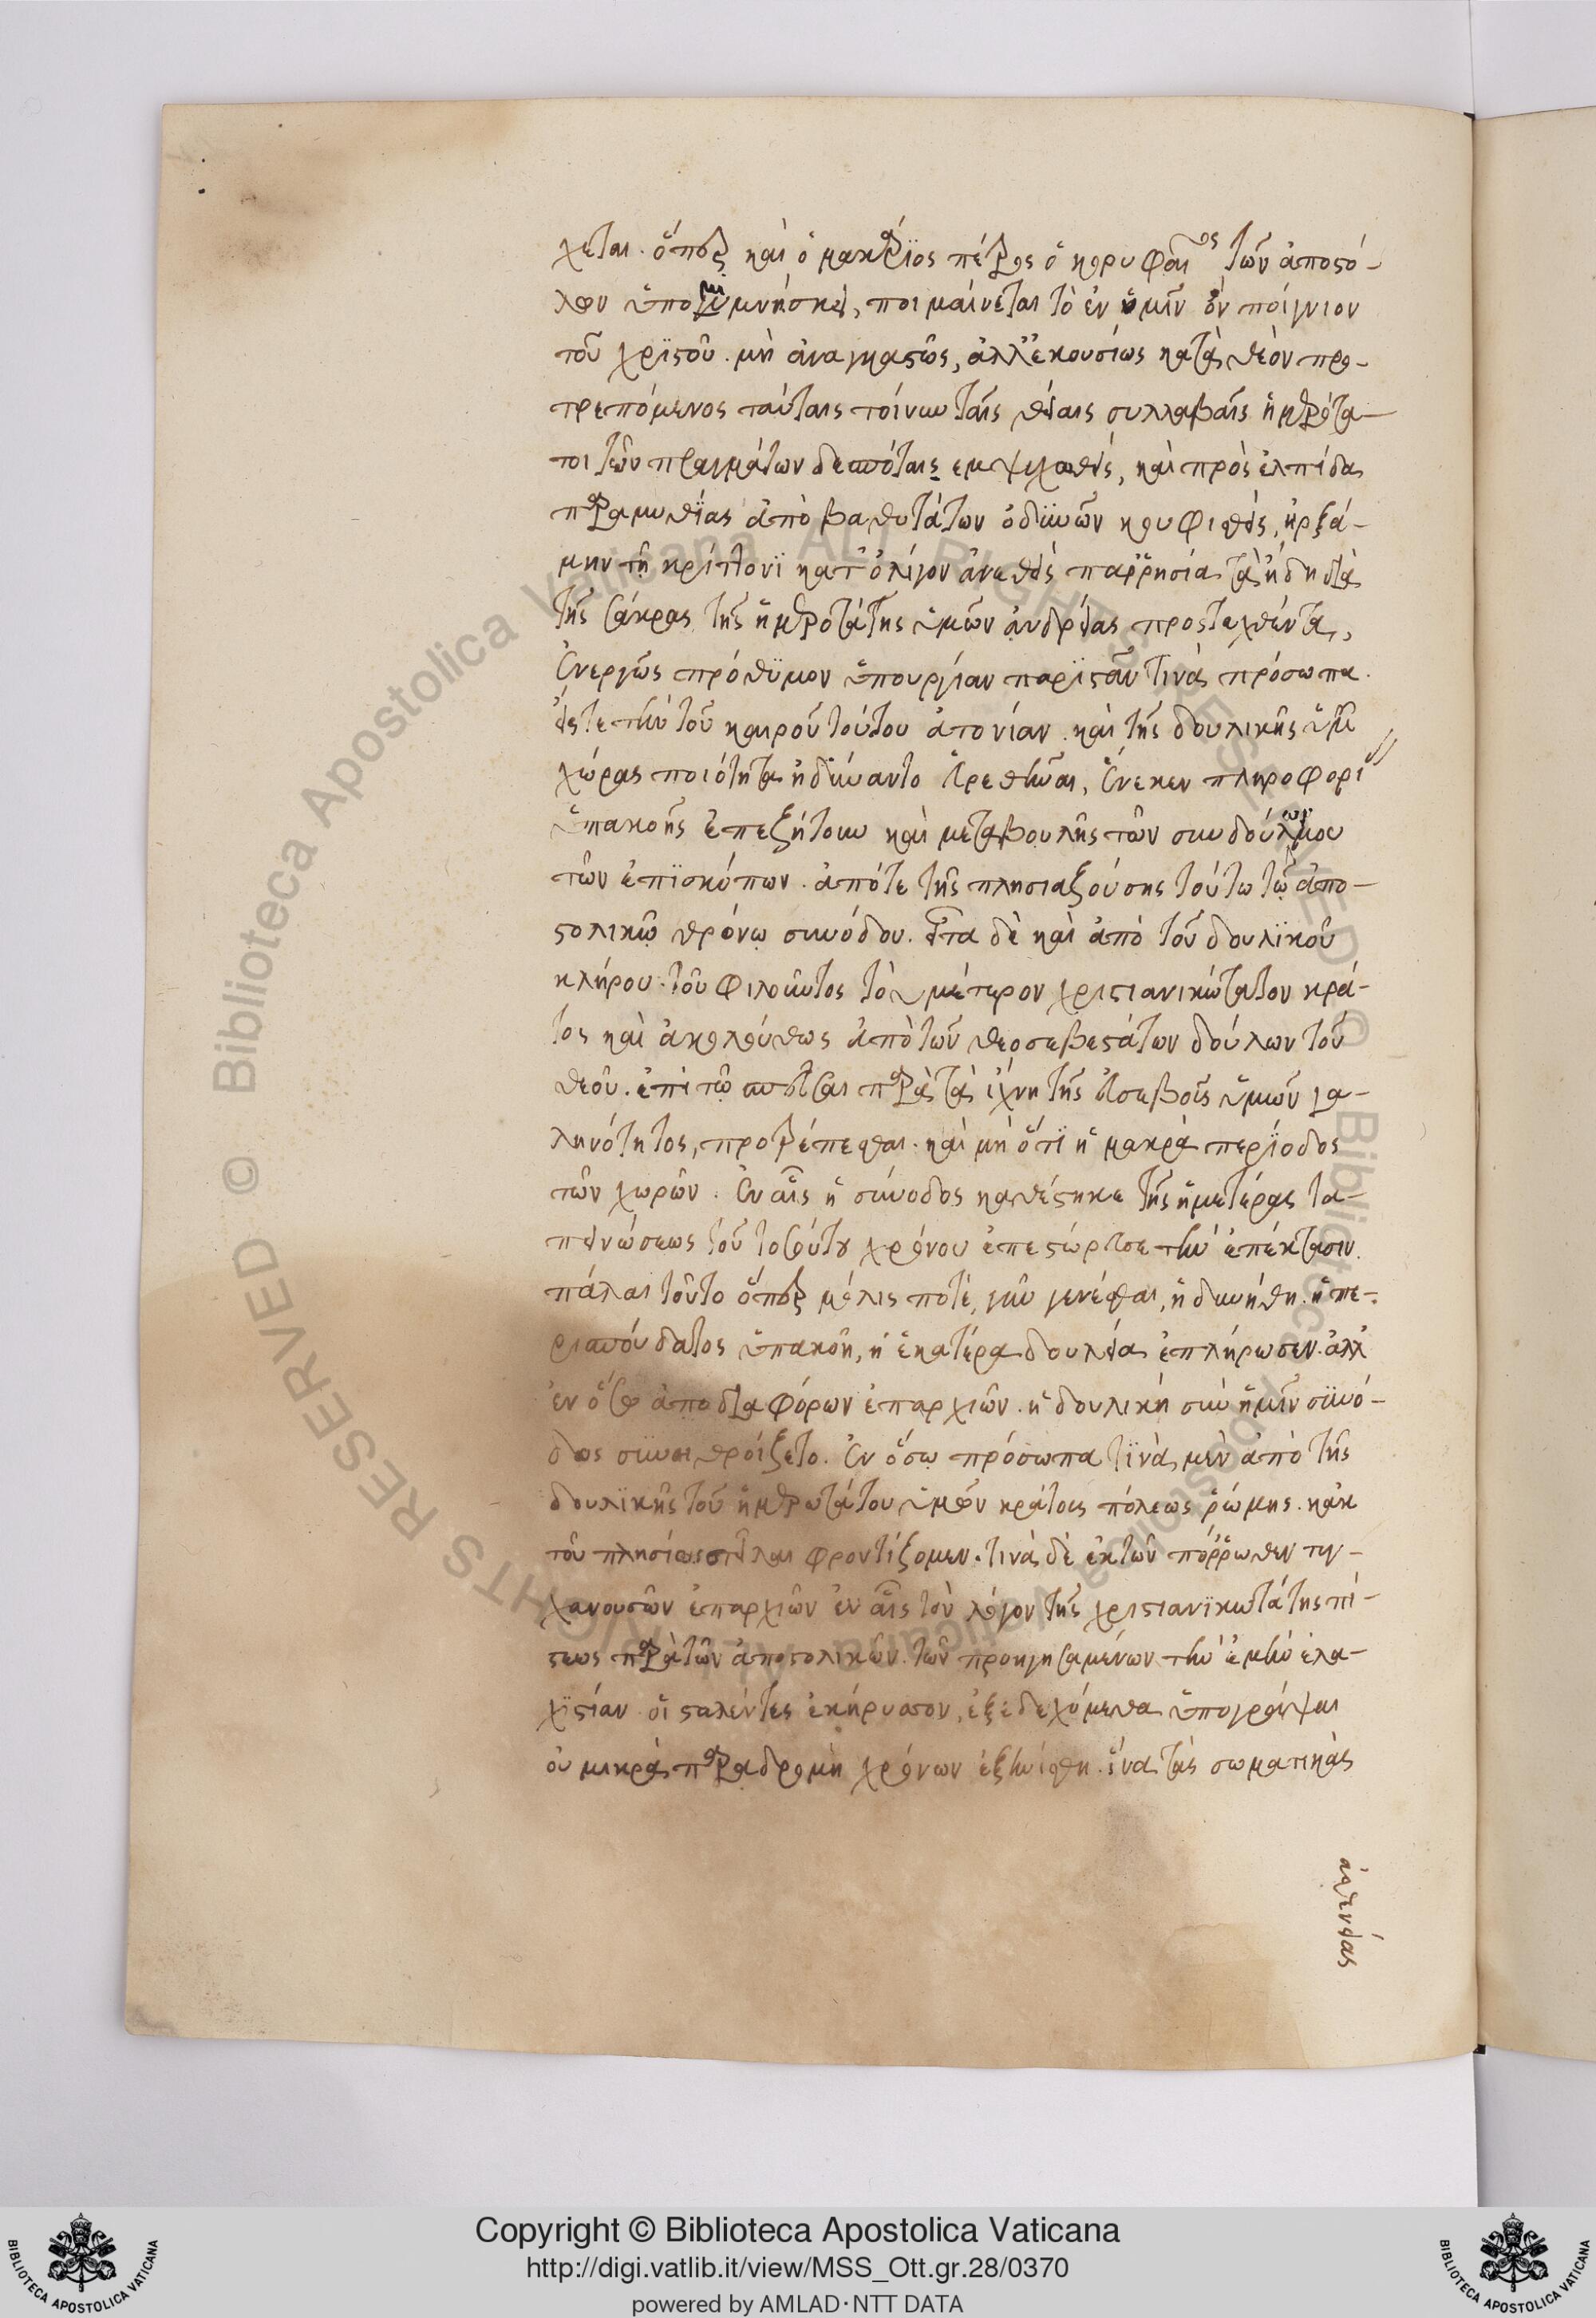 χεται. ὅπερ καὶ ὁ μακάριος πέτρος ὁ κορυφαῖος τῶν ἀποστό-
λων ὑπομιμνήσκει, ποιμαίνεται τὸ ἐν ὑμῖν ὂν ποίμνιον
τοῦ χριστοῦ. μὴ ἀναγκαστῶς, ἀλλ' ἑκουσίως κατὰ θεὸν προ-
τρεπόμενος ταύταις τοίνυν ταῖς θείαις συλλαβαῖς ἡμερότα-
τοι τῶν πραγμάτων δεσπόται εμψυχωθεὶς, καὶ πρὸς ἐλπίδα
παραμυθίας ἀπὸ βαθυτάτων ὀδυνῶν κουφισθεὶς, ἠρξά-
μην τῇ κρίττονι κατ' ὀλίγον ἀνεθεὶς παρρησία τὰ ἤδη διὰ
τῆς σάκρας τῆς ἡμεροτάτης ὑμῶν ἀνδρείας προσταχθέντα,
ἐνεργῶς πρόθυμον ὑπουργίαν παριστᾶν τινὰ πρόσωπα.
εἴστε τὴν τοῦ καιροῦ τούτου ἀτονίαν. καὶ τῆς δουλικῆς ὑμῶν
χώρας ποιότητα ἠδύναντο εὑρεθῆναι, ἕνεκεν πληροφορι
ὑπακοῆς ἐπεζήτουν καὶ μεταβουλῆς τῶν συνδούλων μου
τῶν ἐπισκόπων. ἀπότε τῆς πλησιαζούσης τούτω τῷ ἀπο-
στολικῷ θρόνῳ συνόδου. εἶτα δὲ καὶ ἀπὸ τοῦ δουλικοῦ
κλήρου. τοῦ φιλοῦντος τὸ ὑμέτερον χριστιανικώτατον κρά-
τος καὶ ἀκολούθως ἀπὸ τῶν θεοσεβεστάτων δούλων τοῦ
θεοῦ. ἐπὶ τῷ σπεῦσαι παρὰ τὰ ἴχνη τῆς εὐσεβοῦς ὑμῶν γα-
ληνότητος, προτρέπεσθαι. καὶ μὴ ὅτι ἡ μακρὰ περίοδος
τῶν χωρῶν. ἐν αἷς ἡ σύνοδος καθέστηκε τῆς ἡμετέρας τα-
πεινώσεως τοῦ τοσούτου χρόνου ἐπεσώρευσε τὴν ἐπέκτασιν.
πάλαι τοῦτο ὅπερ μόλις ποτὲ, νῦν γενέσθαι, ἠδυνήθη. ἡ πε-
ρισπούδατος ὑπακοὴ, ἡ ἑκατέρα δουλεία ἐπλήρωσεν. ἀλλ'
ἐν ὅσῳ ἀπὸ διαφόρων ἐπαρχιῶν. ἡ δουλικὴ σὺν ἡμῖν σύνο-
δος συνηθροίζετο. ἐν ὅσῳ πρόσωπα τινὰ μὲν ἀπὸ τῆς
δουλικῆς τοῦ ἡμερωτάτου ὑμῶν κράτους πόλεως ῥώμης. κἀκ
τοῦ πλησίως στεῖλαι φροντίζομεν. τινὰ δὲ ἐκ τῶν πόρρωθεν τυγ-
χανουσῶν ἐπαρχιῶν ἐν αἷς τὸν λόγον τῆς χριστιανικωτάτης πί-
στεως παρὰ τῶν ἀποστολικῶν. τῶν προηγησαμένων τὴν ἐμὴν ἐλα-
χιστίαν οἱ σταλέντες ἐκήρυσσον, ἐξεδεχόμεθα ὑπογράψαι
οὐ μικρὰ παραδρομὴ χρόνων ἐξηνύσθη. ἵνα τὰς σωματικὰς
ἀσθενείας
Copyright © Biblioteca Apostolica Vaticana
http://digi.vatlib.it/view/MSS_Ott.gr.28/0370
powered by AMLAD·NTT DATA